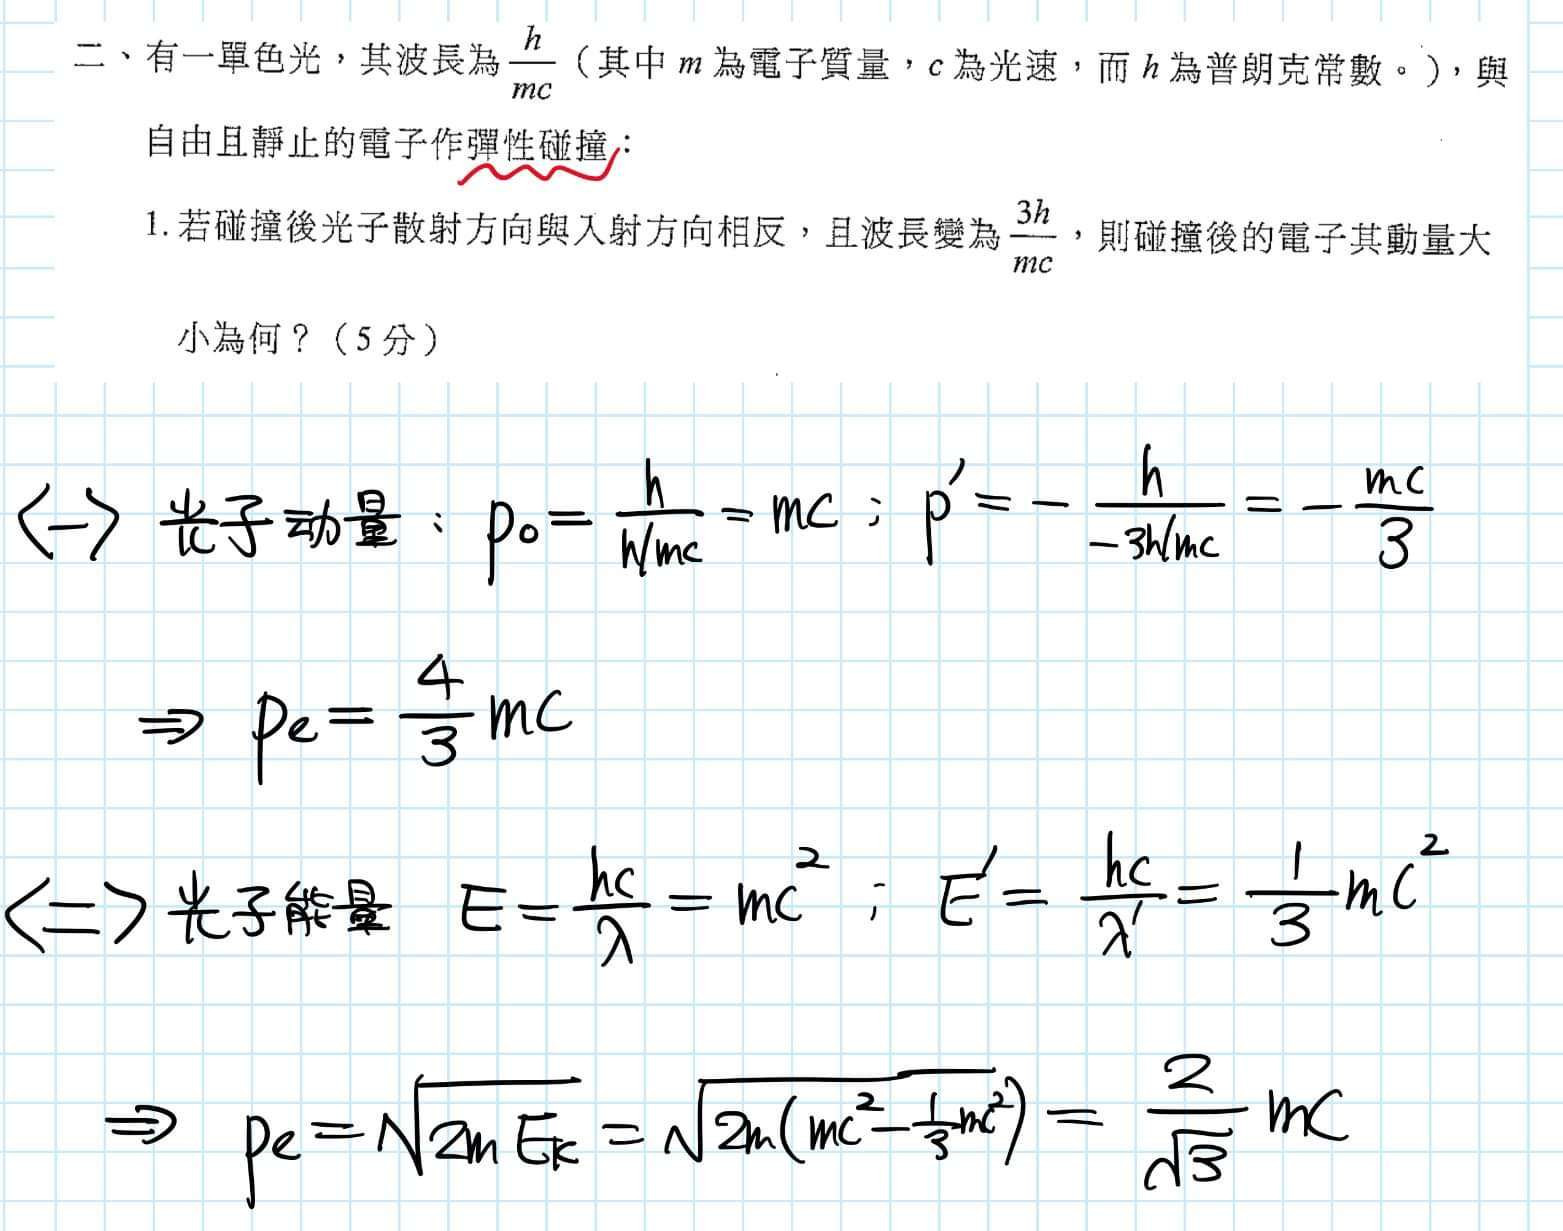 二、有一單色光，其波長為 h/mc（其中 m 為電子質量，c 為光速，而 h 為普朗克常數。），與
自由且靜止的電子作彈性碰撞：
1. 若碰撞後光子散射方向與入射方向相反，且波長變為 3h/mc，則碰撞後的電子其動量大
小為何？（5 分）
<一> 光子动量：p₀ = h/(h/mc) = mc ; p′ = - h/(-3h/mc) = - mc/3
⇒ pe = 4/3 mc
<二> 光子能量 E = hc/λ = mc² ; E′ = hc/λ′ = 1/3 mc²
⇒ pe = √(2m Ek) = √(2m(mc² - 1/3 mc²)) = 2/√3 mc